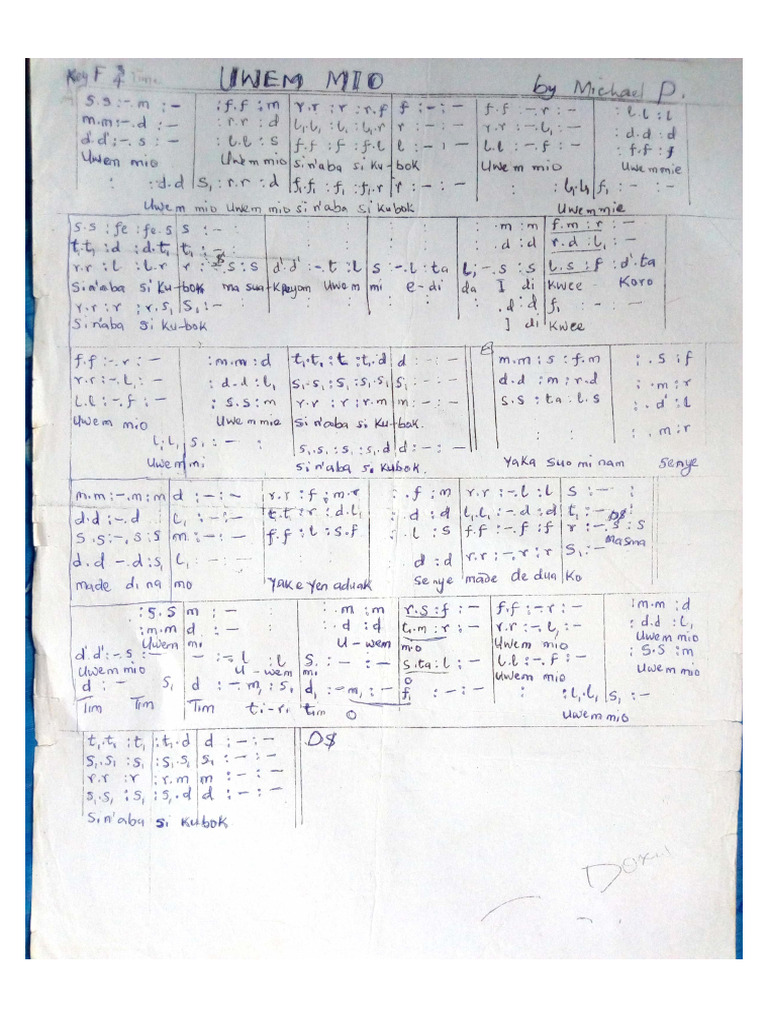 Key F 3/4 Time UWEM MIO by Michael P.
s.s :-.m :- | :f.f :m | r.r :r :r.f | f :- :- | f.f :-.r :- | :l.l :l
m.m :-.d :- | :r.r :d | l₁.l₁ :l₁ :l₁.l₁ | r :- :- | r.r :-.l₁ :- | :d.d :d
d'.d' :-.s :- | :l.l :s | f.f :f :f.l | l :- :- | l.l :-.f :- | :f.f :f
Uwem mio Uwem mio sin'aba si Ku-bok Uwem mio Uwem mie
: : :d.d | s₁ :r.r :d | f₁.f₁ :f₁ :f₁.r | r :- :- | : :l₁.l₁ | f₁ :- :-
Uwem mio Uwem mio sin'aba si Kubok Uwem mie
s.s :fe :fe.s | s :- | : | : | : | : | : .m :m | f.m :r :-
t₁.t₁ :d :d.t₁ | t₁ :- : | : | : | : | : | : .d :d | r.d :l₁ :-
r.r :l :l.r | r :-.s :s | d'.d' :-.t :l | s :-.l :ta | l :-.s :s | l.s :f :d'.ta
Sin'aba si Ku-bok ma sua Kpeyom Uwem mi e-di da I di Kwee Koro
r.r :r :r.s₁ | s₁ :- | .d :d | f₁ :-
Sin'aba si Ku-bok I di Kwee
f.f :-.r :- | :m.m :d | t₁.t₁ :t₁ :t₁.d | d :- :- | m.m :s :f.m | : .s :f
r.r :-.t₁ :- | :d.d :l₁ | s₁.s₁ :s₁ :s₁.s₁ | s₁ :- :- | d.d :m :r.d | : .m :r
l.l :-.f :- | :s.s :m | r.r :r :r.m | m :- :- | s.s :ta :l.s | : .d' :l
Uwem mio Uwem mie sin'aba si Ku-bok.
l₁.l₁ | s₁ :- : | s₁.s₁ :s₁ :s₁.d | d :- :- | : : | : .m :r
Uwem mi sin'aba si Kubok. Yaka suo mi nam senye
m.m :-.m :m | d :- :- | r.r :f :m.r | : .f :m | r.r :-.l :l | s :- :
d.d :-.d | l₁ :- :- | t₁.t₁ :r :d.l₁ | : d :d | l₁.l₁ :-.d :d | t₁ :- D$
s.s :-.s :s | m :- :- | f.f :l :s.f | : .l :s | f.f :-.f :f | r :-.s :s
masma
d.d -.d :s₁ | l₁ :- :- | d :d | r.r :-.r :r | s₁ :-
made di na mo Yake yen aduak senye made de dua Ko
:s.s | m :- | : .m :m | r.s :f :- | f.f :-r :- | :m.m :d
:m.m | d :- | : .d :d | t₁.m :r :- | r.r :-.l₁ :- | :d.d :l₁
Uwem mi U-wem mio Uwem mio Uwem mio
d'.d' :-.s :- | - :-.l :l | s :- :- | s.ta :l :- | l.l :-.f :- | :s.s :m
Uwem mio U-wem mi o Uwem mio Uwem mio
d :- s₁ | d :-m₁ :s₁ | d₁ :-m₁ :- | f₁ :- :- | : :l₁.l₁ | s₁ :-
Tim Tim Tim ti-ri tim o Uwem mio
t₁.t₁ :t₁ | :t₁.d | d :- :- | D$
s₁.s₁ :s₁ | :s₁.s₁ | s₁ :- :-
r.r :r | :r.m | m :- :-
s₁.s₁ :s₁ | :s₁.d | d :- :-
Sin'aba si Kubok